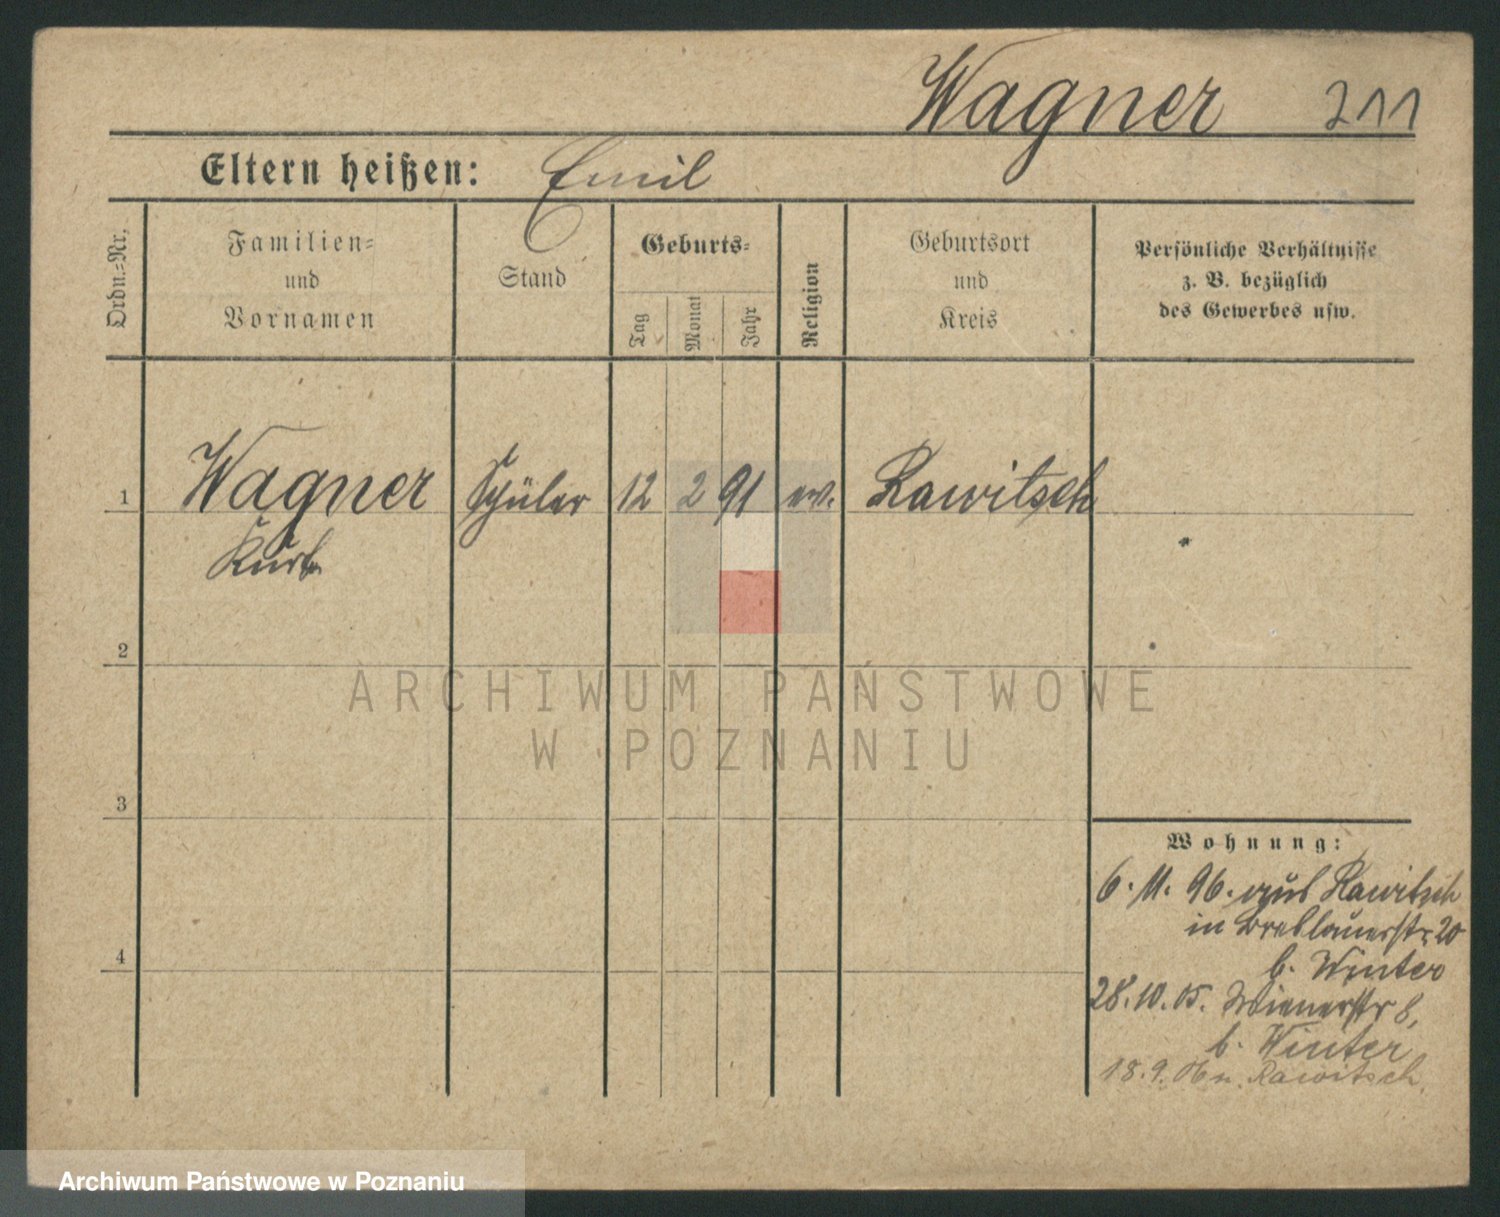 Wagner 211
Eltern heißen: Emil
Ordn.=Nr.
Familien=
und
Vornamen
Stand
Geburts=
Tag
Monat
Jahr
Religion
Geburtsort
und
Kreis
Persönliche Verhältnisse
z. B. bezüglich
des Gewerbes usw.
1 Wagner Schüler 12 2 91 ev. Rawitsch
Kurt
2
3
4
Wohnung:
6. 11. 96. aus Rawitsch
in Breslauerstr 20
b. Winter
28. 10. 05. Wienerstr 8,
b. Winter
18. 9. 06 n. Rawitsch.
ARCHIWUM PAŃSTWOWE
W POZNANIU
Archiwum Państwowe w Poznaniu